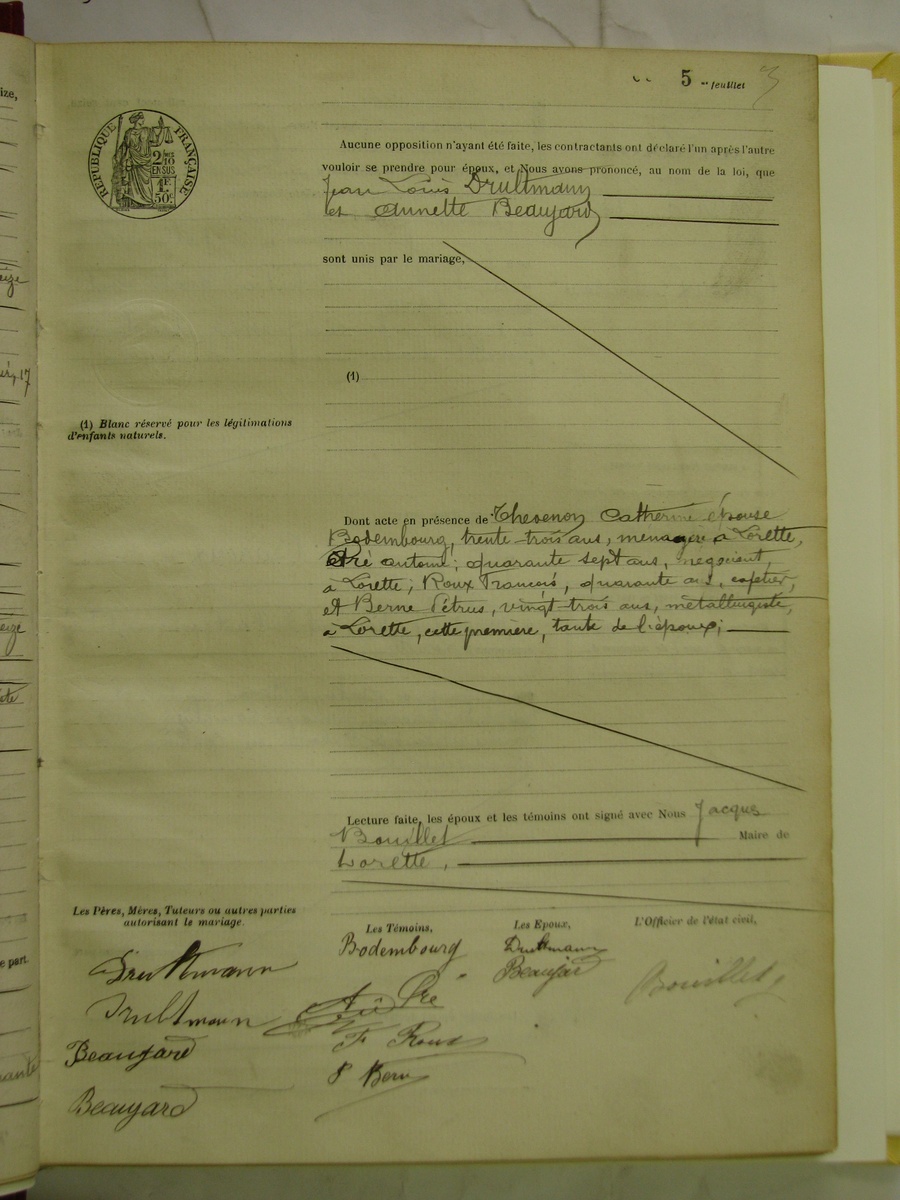 5 feuillet
RÉPUBLIQUE FRANÇAISE
2/10
EN SUS
1F.
50c
Aucune opposition n'ayant été faite, les contractants ont déclaré l'un après l'autre
vouloir se prendre pour époux, et Nous avons prononcé, au nom de la loi, que
Jean Louis Drultmann
et Annette Beaujard
sont unis par le mariage,
(1)
(1) Blanc réservé pour les légitimations
d'enfants naturels.
Dont acte en présence de Thevenon Catherine épouse
Bodembourg, trente trois ans, menagère à Lorette,
antoine; quarante sept ans, négociant,
à Lorette; Roux François, quarante ans, cafetier,
et Berne Pétrus, vingt trois ans, métallurgiste,
à Lorette, cette première, tante de l'époux;
Lecture faite, les époux et les témoins ont signé avec Nous Jacques
Bouillet Maire de
Lorette,
Les Pères, Mères, Tuteurs ou autres parties
autorisant le mariage.
Drultmann
Drultmann
Beaujard
Beaujard
Les Témoins,
Bodembourg
F Roux
P Berne
Les Epoux,
Drultmann
Beaujard
L'Officier de l'état civil,
Bouillet